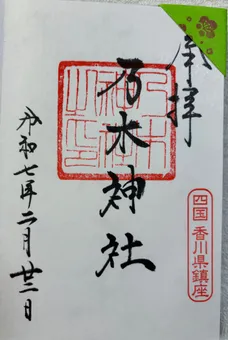 奉拝
乃木神社
四国 香川県鎮座
令和七年二月廿三日